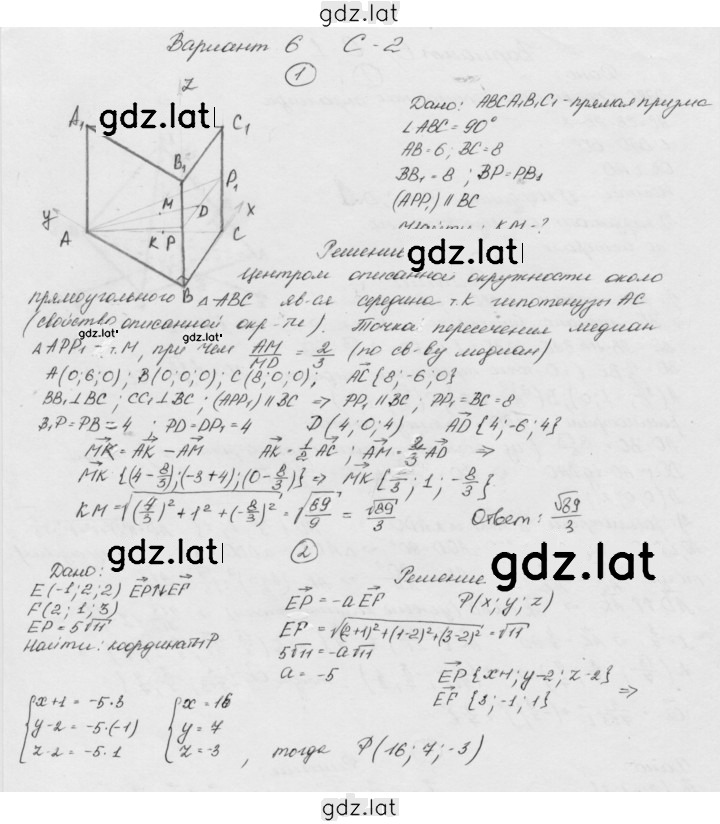 gdz.lat
Вариант 6 С-2
1
Дано: ABCA1B1C1 - прямая призма
∠ABC = 90°
AB = 6; BC = 8
BB1 = 8; BP = PB1
(APP1) ∥ BC
KM - ?
z
A1
C1
B1
P1
M
D
x
y
A
K P
C
B
gdz.lat
Решение gdz.lat
Центром описанной окружности около
прямоугольного △ABC яв-ся середина т.К гипотенузы AC
(свойство описанной окр-ти). Точка пересечения медиан
gdz.lat
△APP1 - т.М, при чем AM/MD = 2/3 (по св-ву медиан)
A(0;6;0); B(0;0;0); C(8;0;0); AC{8;-6;0}
BB1⊥BC; CC1⊥BC; (APP1)∥BC ⇒ PP1∥BC; PP1=BC=8
B1P=PB=4; PD=DP1=4 D(4;0;4) AD{4;-6;4}
MK = AK - AM AK = 1/2 AC; AM = 2/3 AD ⇒
MK{(4-8/3);(-3+4);(0-8/3)} ⇒ MK{4/3;1;-8/3}
KM = √((4/3)²+1²+(-8/3)²) = √(89/9) = √89/3 Ответ: √89/3
gdz.lat
2
Дано:
E(-1;2;2) EP↑↓EF
F(2;1;3)
EP = 5√11
Найти: координат P
Решение gdz.lat
EP = -a EF P(x;y;z)
EF = √((2+1)²+(1-2)²+(3-2)²) = √11
5√11 = -a√11
a = -5
EP{x+1; y-2; z-2}
EF{3;-1;1} ⇒
x+1 = -5·3 x = 16
y-2 = -5·(-1) y = 7
z-2 = -5·1 z = -3, тогда P(16;7;-3)
gdz.lat